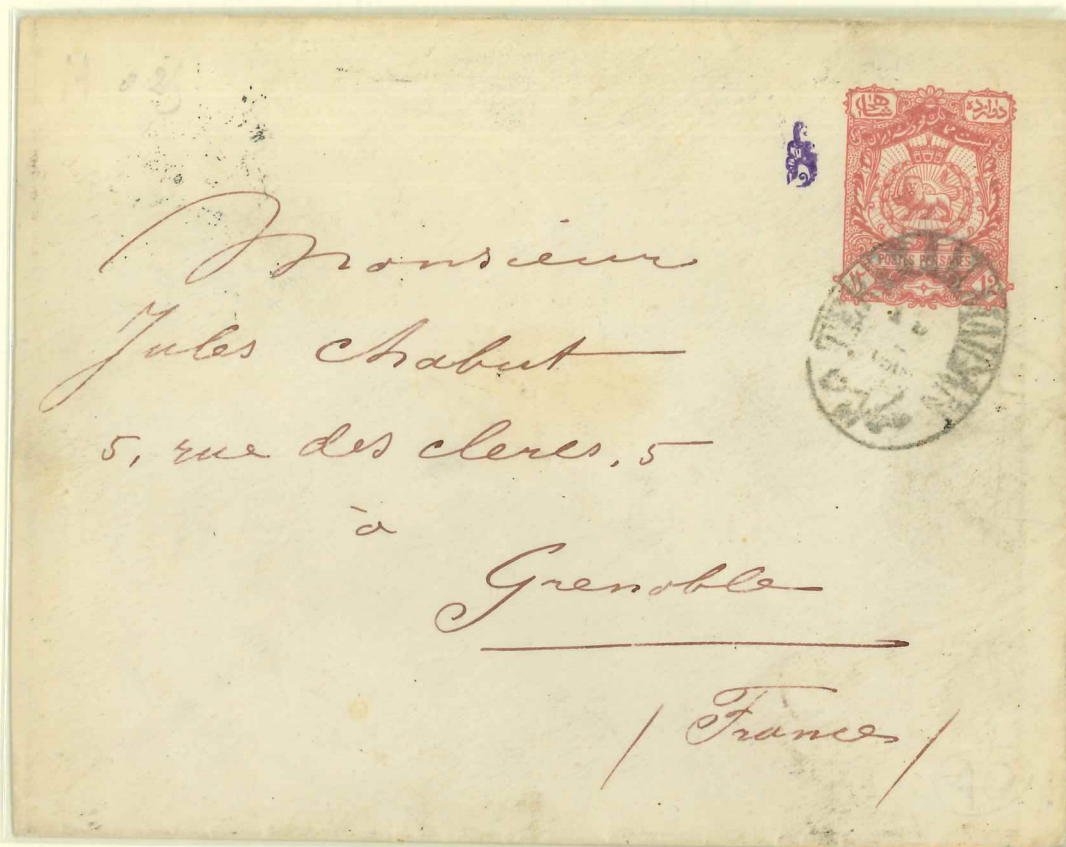 دوازده شاهی
POSTES PERSANES
۱۲ ۱۲
Monsieur
Jules Chabut
5, rue des clercs, 5
à
Grenoble
/ France /